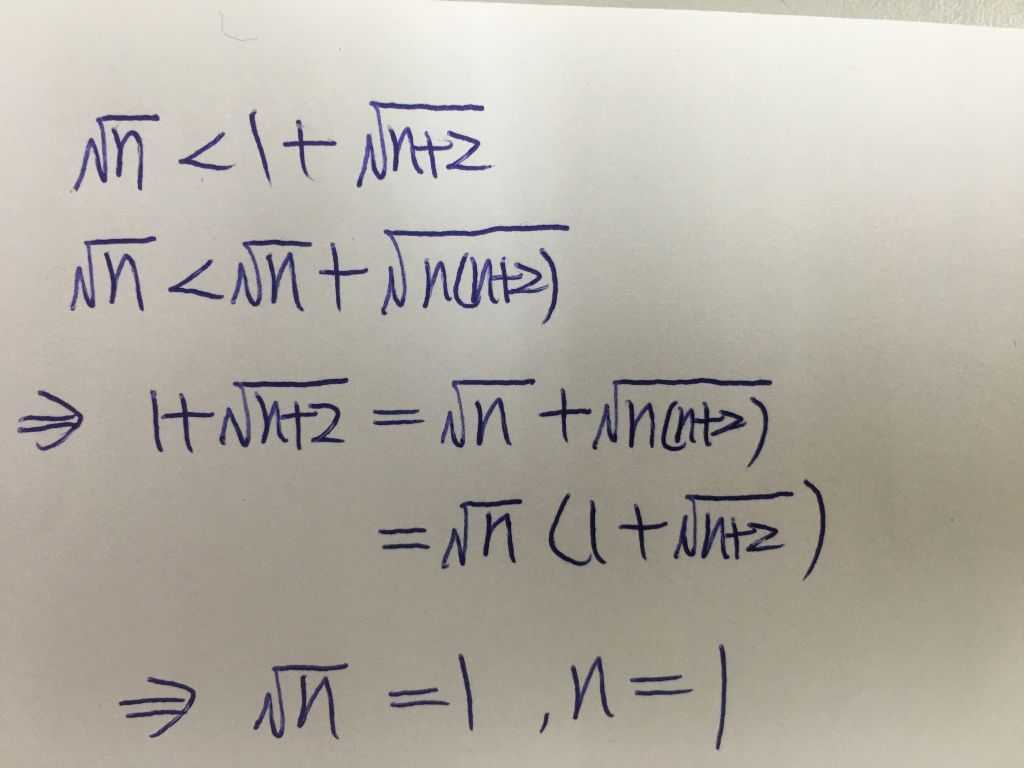 √n < 1 + √(n+2)
√n < √n + √(n(n+2))
⇒ 1+√(n+2) = √n + √(n(n+2))
= √n (1 + √(n+2))
⇒ √n = 1 , n = 1